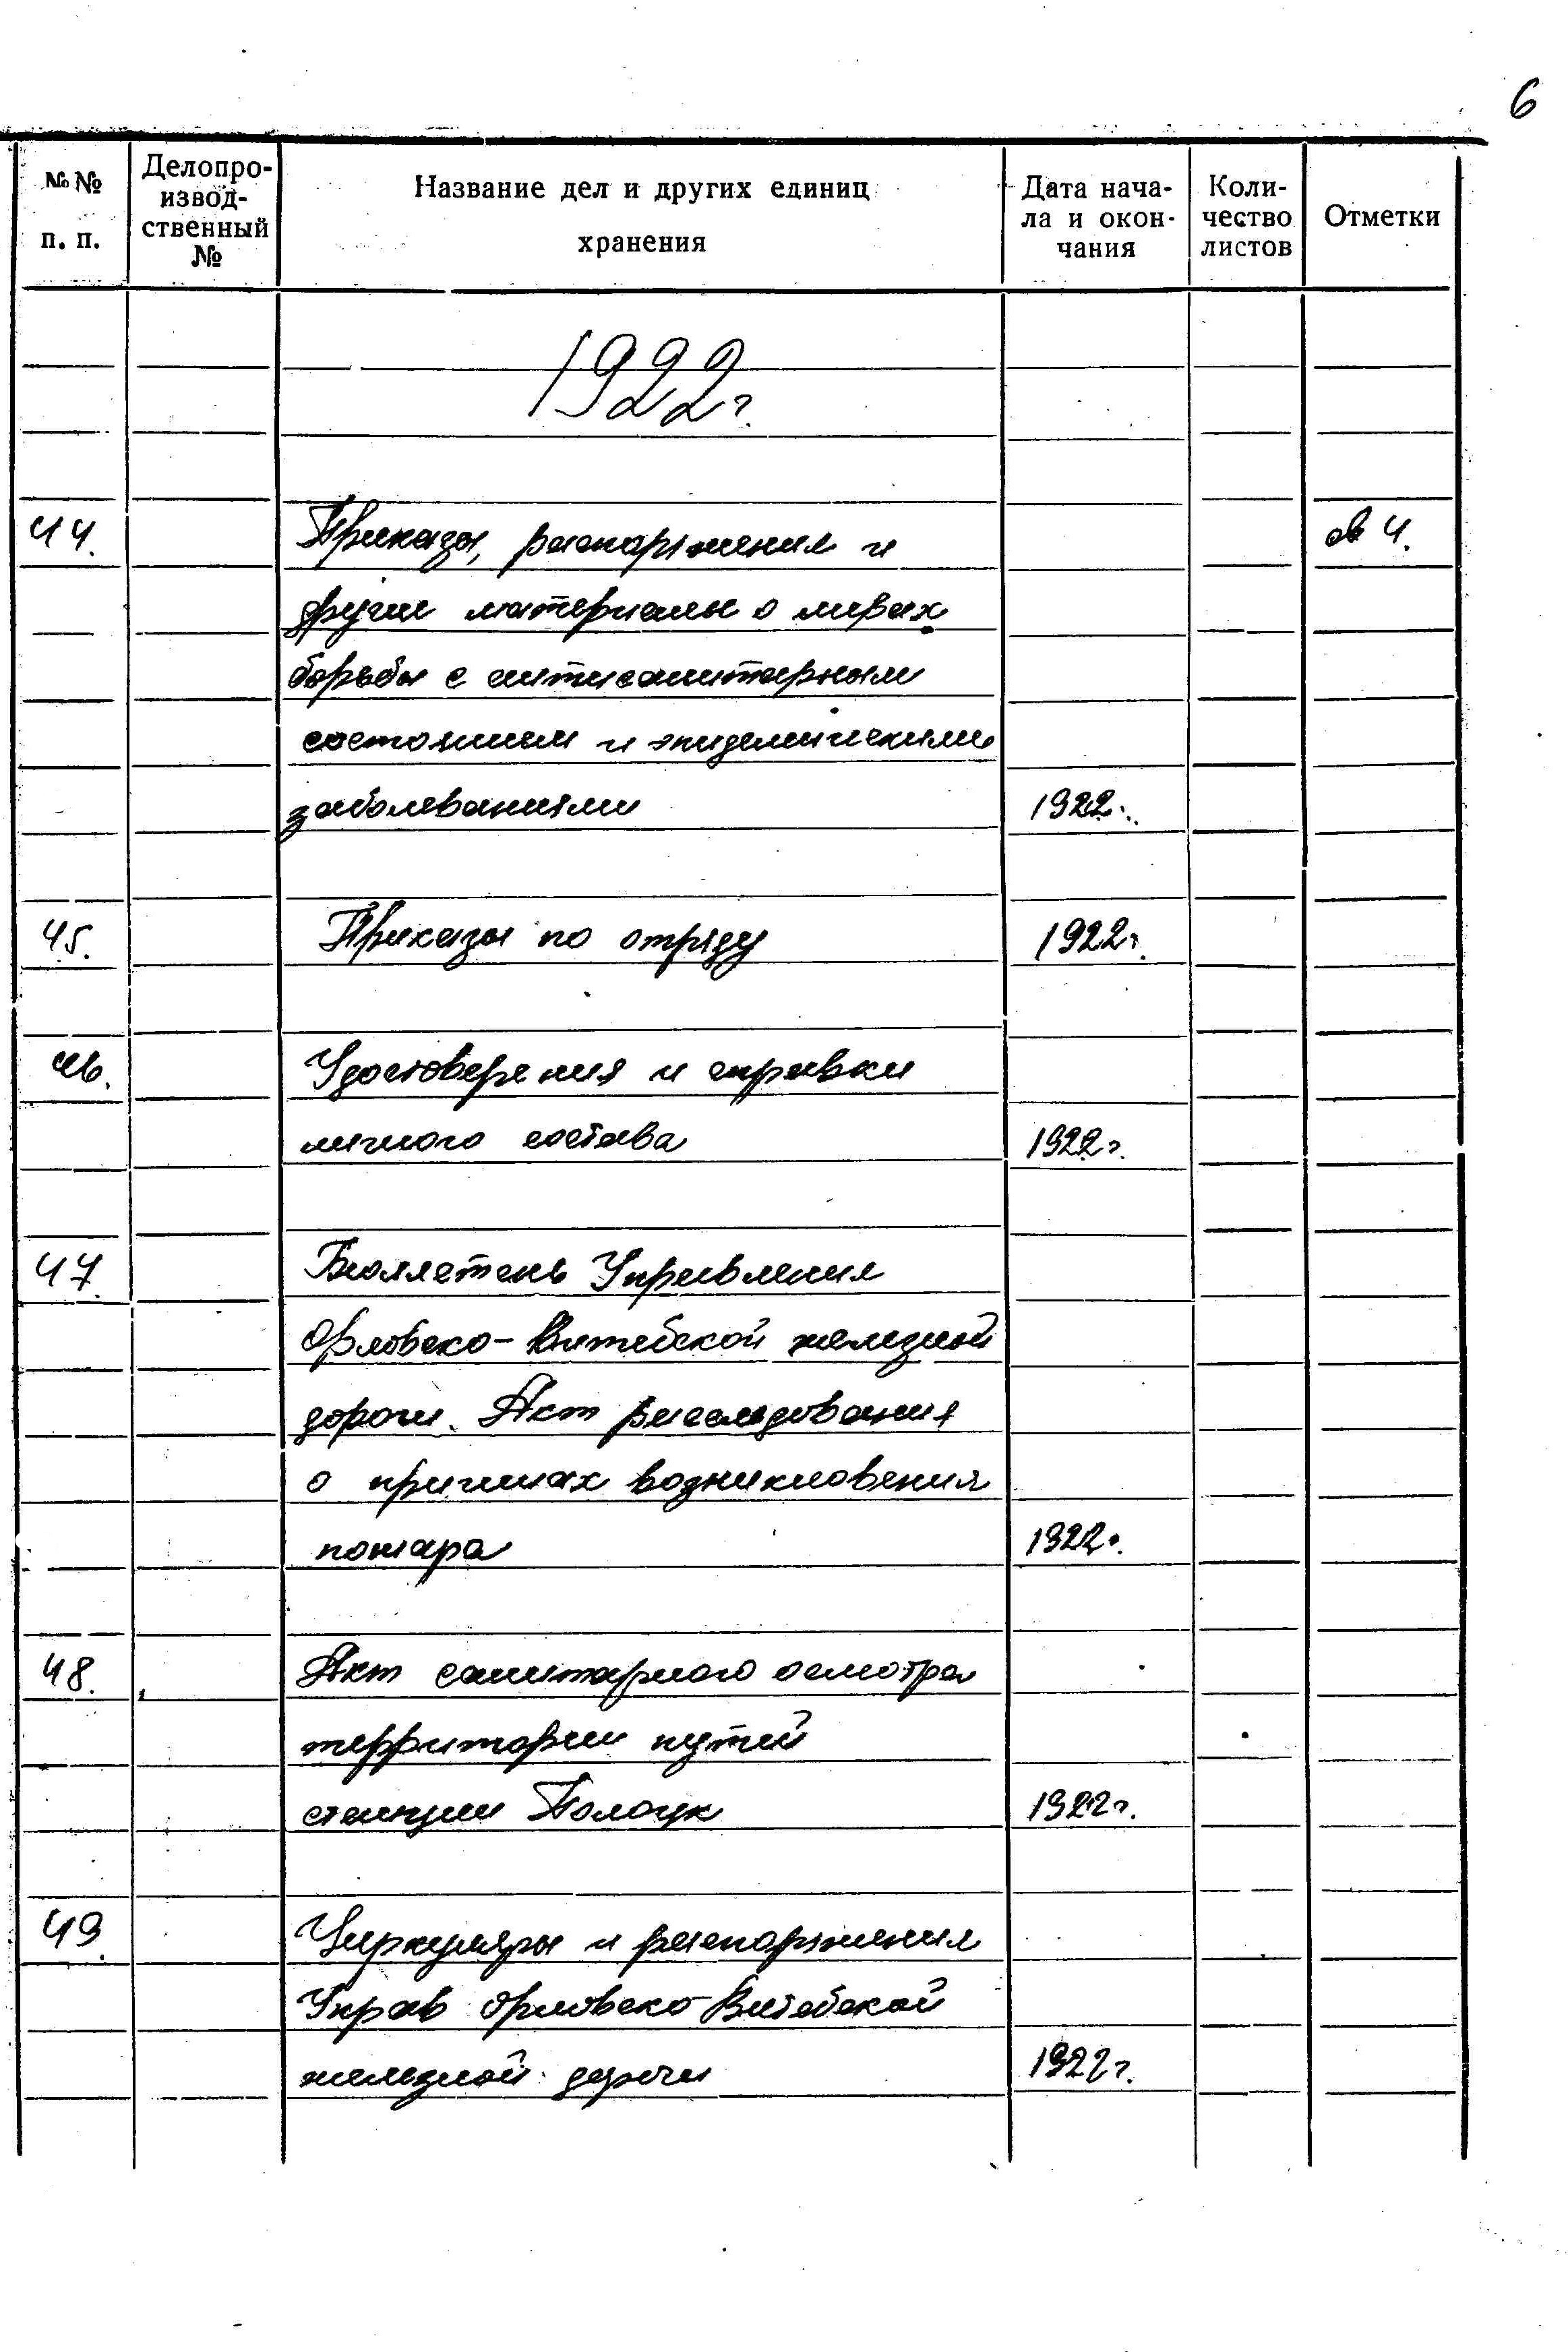 6
№ № п. п.
Делопро-
извод-
ственный
№
Название дел и других единиц
хранения
Дата нача-
ла и окон-
чания
Коли-
чество
листов
Отметки
1922 г.
44. Приказы, распоряжения и
другие материалы о мерах
борьбы с антисанитарным
состоянием и эпидемическими
заболеваниями 1922 г.
45. Приказы по отряду 1922 г.
46. Удостоверения и справки
личного состава 1922 г.
47. Бюллетень Управления
Орловско-Витебской железной
дороги. Акт расследования
о причинах возникновения
пожара 1922 г.
48. Акт санитарного осмотра
территории путей
станции Полоцк 1922 г.
49. Циркуляры и распоряжения
Управ Орловско-Витебской
железной дороги 1922 г.